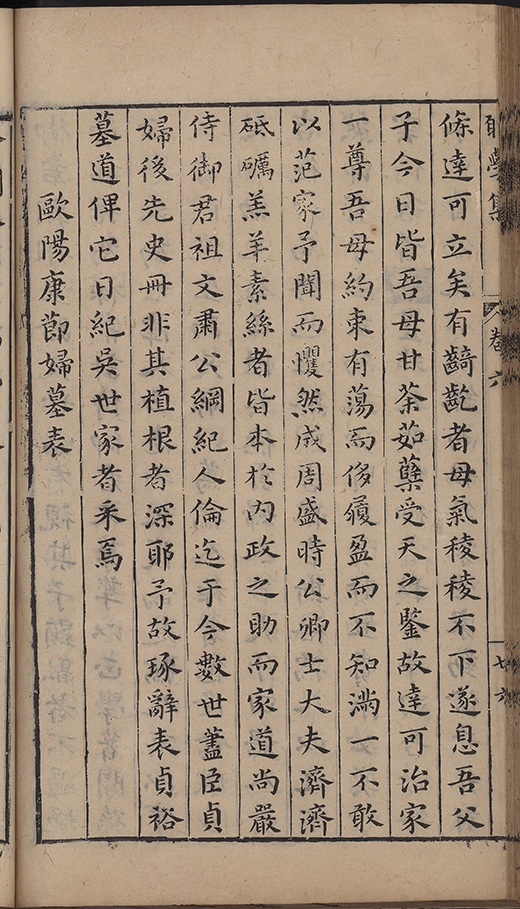 卷六
條達可立矣有齮齕者母氣稜稜不下遂息吾父
子今日皆吾母甘荼茹蘗受天之鑒故達可治家
一尊吾母約束有蕩而侈履盈而不知滿一不敢
以范家予聞而懼然成周盛時公卿士大夫濟濟
砥礪羔羊素絲者皆本於內政之助而家道尚嚴
侍御君祖文肅公綱紀人倫迄于今數世藎臣貞
婦後先史冊非其植根者深耶予故琢辭表貞裕
墓道俾它日紀吳世家者采焉
歐陽康節婦墓表